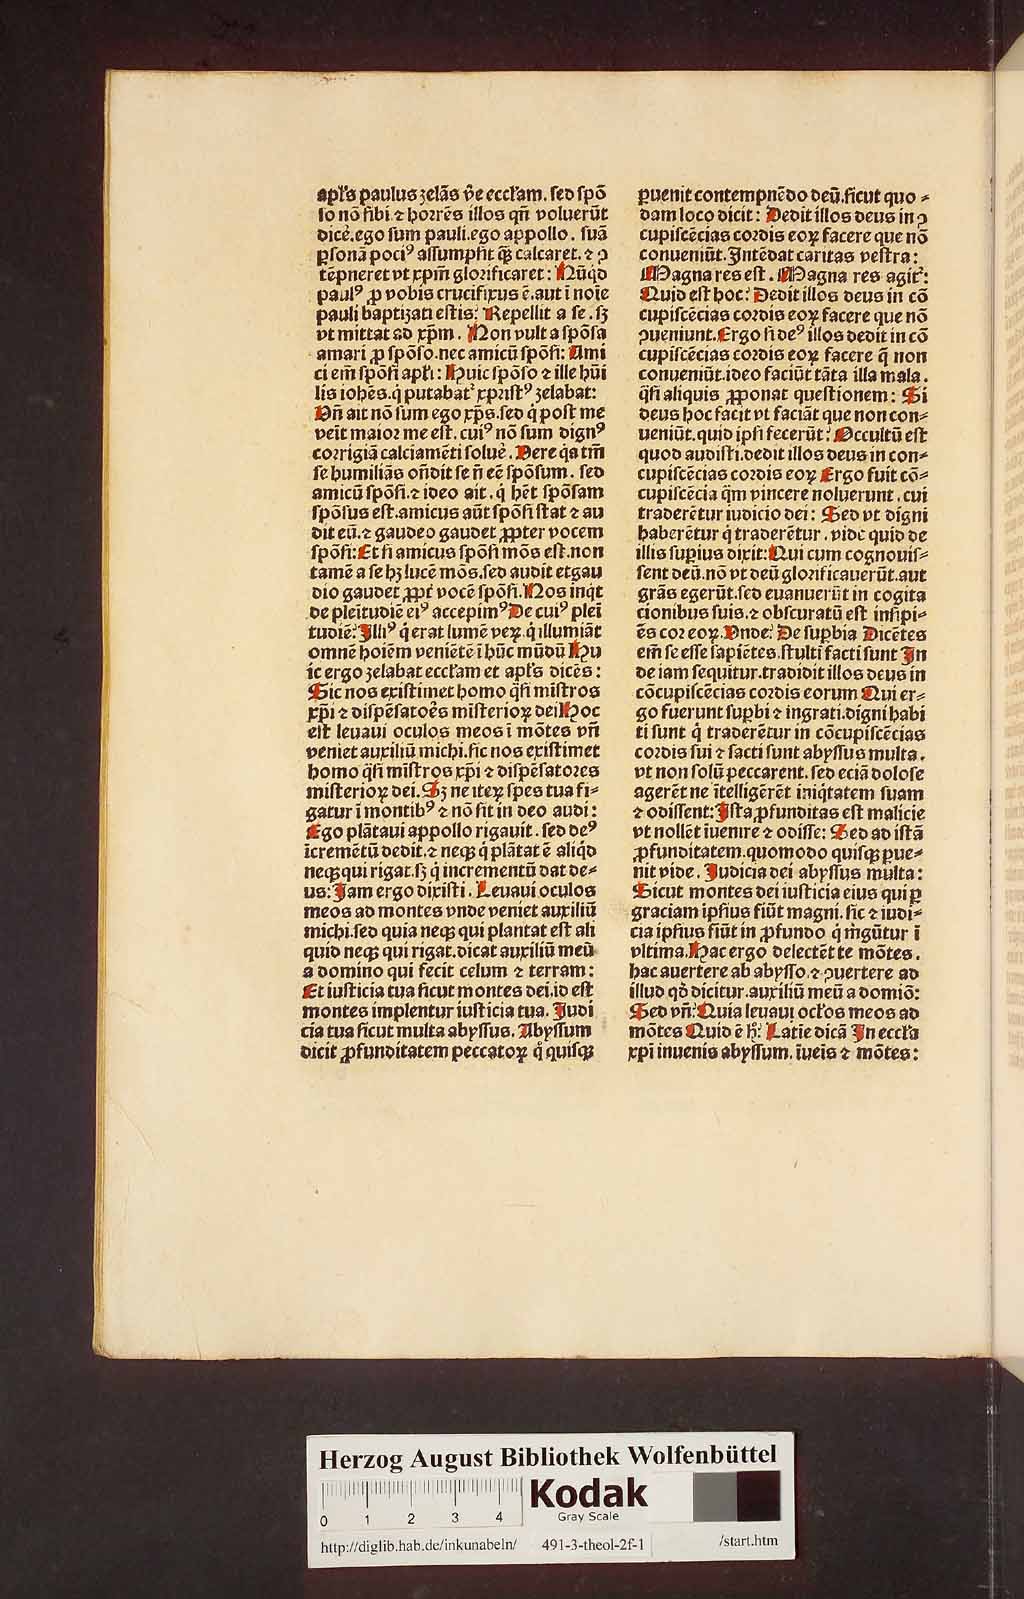 apl̄s paulus zelās v̄e eccl̄am. sed spō
so nō sibi ⁊ horrēs illos qn̄ voluerūt
dicē. ego sum pauli. ego appollo. suā
ꝑsonā pociꝰ assumpsit qꝫ calcaret. ⁊ ꝯ
tēpneret vt xpm̄ glorificaret: Nūqd̄
paulꝰ ꝓ vobis crucifixus ē. aut ī noīe
pauli baptizati estis: Repellit a se. sꝫ
vt mittat ad xp̄m. Non vult a spōsa
amari ꝓ spōso. nec amicū spōsi: Ami
ci em̄ spōsi apl̄i: Huic spōso ⁊ ille hūi
lis iohēs. q̇ putabat̉ xp̄ristꝰ zelabat:
Vn̄ ait nō sum ego xp̄s. sed q̇ post me
veīt maior me est. cuiꝰ nō sum dignꝰ
corrigiā calciamēti soluē. Vere q̇a tm̄
se humiliās on̄dit se n̄ eē spōsum. sed
amicū spōsi. ⁊ ideo ait. q̇ hēt spōsam
spōsus est. amicus aūt spōsi stat ⁊ au
dit eū. ⁊ gaudeo gaudet ꝓpter vocem
spōsi: Et si amicus spōsi mōs est. non
tamē a se hꝫ lucē mōs. sed audit et gau
dio gaudet ꝓpt̉ vocē spōsi. Nos inqt̄
de pleītudiē eiꝰ accepimꝰ De cuiꝰ pleī
tudiē: Illiꝰ q̇ erat lumē veꝝ q̇ illumiāt
omnē hoīem veniētē ī hūc mūdū Hu
ic ergo zelabat eccl̄am et apl̄s dicēs:
Sic nos existimet homo q̄si mīstros
xp̄i ⁊ dispēsatoēs misterioꝝ dei Hoc
est leuaui oculos meos ī mōtes vn̄
veniet auxiliū michi. sic nos existimet
homo q̄si mīstros xp̄i ⁊ dispēsatores
misterioꝝ dei. Sꝫ ne iteꝝ spes tua fi⸗
gatur ī montibꝰ ⁊ nō sit in deo audi:
Ego plātaui appollo rigauit. sed deꝰ
īcremētū dedit. ⁊ neqꝫ q̇ plātat ē aliqd̄
neqꝫ qui rigat. sꝫ q̇ incrementū dat de⸗
us: Jam ergo dixisti. Leuaui oculos
meos ad montes vnde veniet auxiliū
michi. sed quia neqꝫ qui plantat est ali
quid neqꝫ qui rigat. dicat auxiliū meū
a domino qui fecit celum ⁊ terram:
Et iusticia tua sicut montes dei. id est
montes implentur iusticia tua. Judi
cia tua sicut multa abyssus. Abyssum
dicit ꝓfunditatem peccatoꝝ q̇ quisqꝫ
ꝑuenit contempnēdo deū. sicut quo⸗
dam loco dicit: Dedit illos deus in ꝯ
cupiscēcias cordis eoꝝ facere que nō
conueniūt. Intēdat caritas vestra:
Magna res est. Magna res agit̉:
Quid est hoc: Dedit illos deus in cō
cupiscēcias cordis eoꝝ facere que nō
ꝯueniunt. Ergo si deꝰ illos dedit in cō
cupiscēcias cordis eoꝝ facere q̄ non
conueniūt. ideo faciūt tāta illa mala.
q̄si aliquis ꝓponat questionem: Si
deus hoc facit vt faciāt que non con⸗
ueniūt. quid ipsi fecerūt: Occultū est
quod audisti. dedit illos deus in con⸗
cupiscēcias cordis eoꝝ Ergo fuit cō⸗
cupiscēcia q̄m vincere noluerunt. cui
traderētur iudicio dei: Sed vt digni
haberētur q̇ traderētur. vide quid de
illis suꝑius dixit: Qui cum cognouis⸗
sent deū. nō vt deū glorificauerūt. aut
grās egerūt. sed euanuerūt in cogita
cionibus suis. ⁊ obscuratū est insipi⸗
ēs cor eoꝝ. Vnde: De suꝑbia Dicētes
em̄ se esse sapiētes. stulti facti sunt In
de iam sequitur. tradidit illos deus in
cōcupiscēcias cordis eorum Qui er⸗
go fuerunt suꝑbi ⁊ ingrati. digni habi
ti sunt q̇ traderētur in cōcupiscēcias
cordis sui ⁊ facti sunt abyssus multa.
vt non solū peccarent. sed eciā dolose
agerēt ne ītelligerēt iniq̇tatem suam
⁊ odissent: Ista ꝓfunditas est malicie
vt nollēt īuenire ⁊ odisse: Sed ad istā
ꝓfunditatem. quomodo quisqꝫ ꝑue⸗
nit vide. Judicia dei abyssus multa:
Sicut montes dei iusticia eius qui ꝑ
graciam ipsius fiūt magni. sic ⁊ iudi⸗
cia ipsius fiūt in ꝓfundo q̇ m̄gūtur ī
vltima. Hac ergo delectēt te mōtes.
hac auertere ab abysso. ⁊ ꝯuertere ad
illud qd̄ dicitur. auxiliū meū a domiō:
Sed vn̄: Quia leuaui ocl̄os meos ad
mōtes Quid ē h̄: Latie dicā In eccl̄a
xp̄i inuenis abyssum. īueīs ⁊ mōtes:
Herzog August Bibliothek Wolfenbüttel
0 1 2 3 4
Kodak
Gray Scale
http://diglib.hab.de/inkunabeln/ 491-3-theol-2f-1 /start.htm